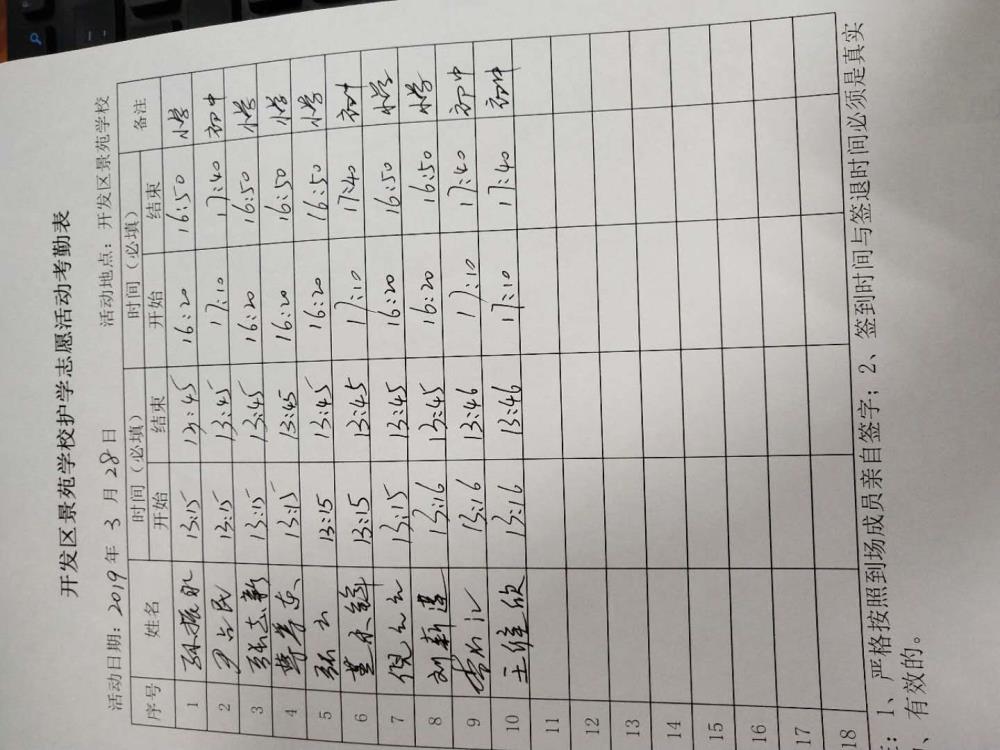 开发区景苑学校护学志愿活动考勤表
活动日期：2019年 3 月 28 日 活动地点：开发区景苑学校
序号 姓名 时间（必填） 时间（必填） 备注
开始 结束 开始 结束
1 13:15 13:45 16:20 16:50 小学
2 13:15 13:45 17:10 17:40 初中
3 13:15 13:45 16:20 16:50 小学
4 13:15 13:45 16:20 16:50 小学
5 张 13:15 13:45 16:20 16:50 小学
6 13:15 13:45 17:10 17:40 初中
7 倪元元 13:15 13:45 16:20 16:50 小学
8 刘莉 13:16 13:45 16:20 16:50 小学
9 13:16 13:46 17:10 17:40 初中
10 王維欣 13:16 13:46 17:10 17:40 初中
11
12
13
14
15
16
17
18
1、严格按照到场成员亲自签字；2、签到时间与签退时间必须是真实
、有效的。